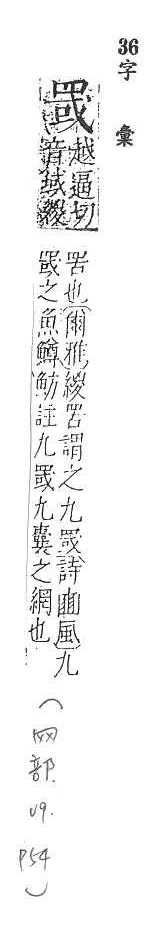 36字 彙
罭
越逼切
音域緵
罟也爾雅緵罟謂之九罭詩豳風九
罭之魚鱒魴註九罭九囊之網也
(网部. V9. P54)